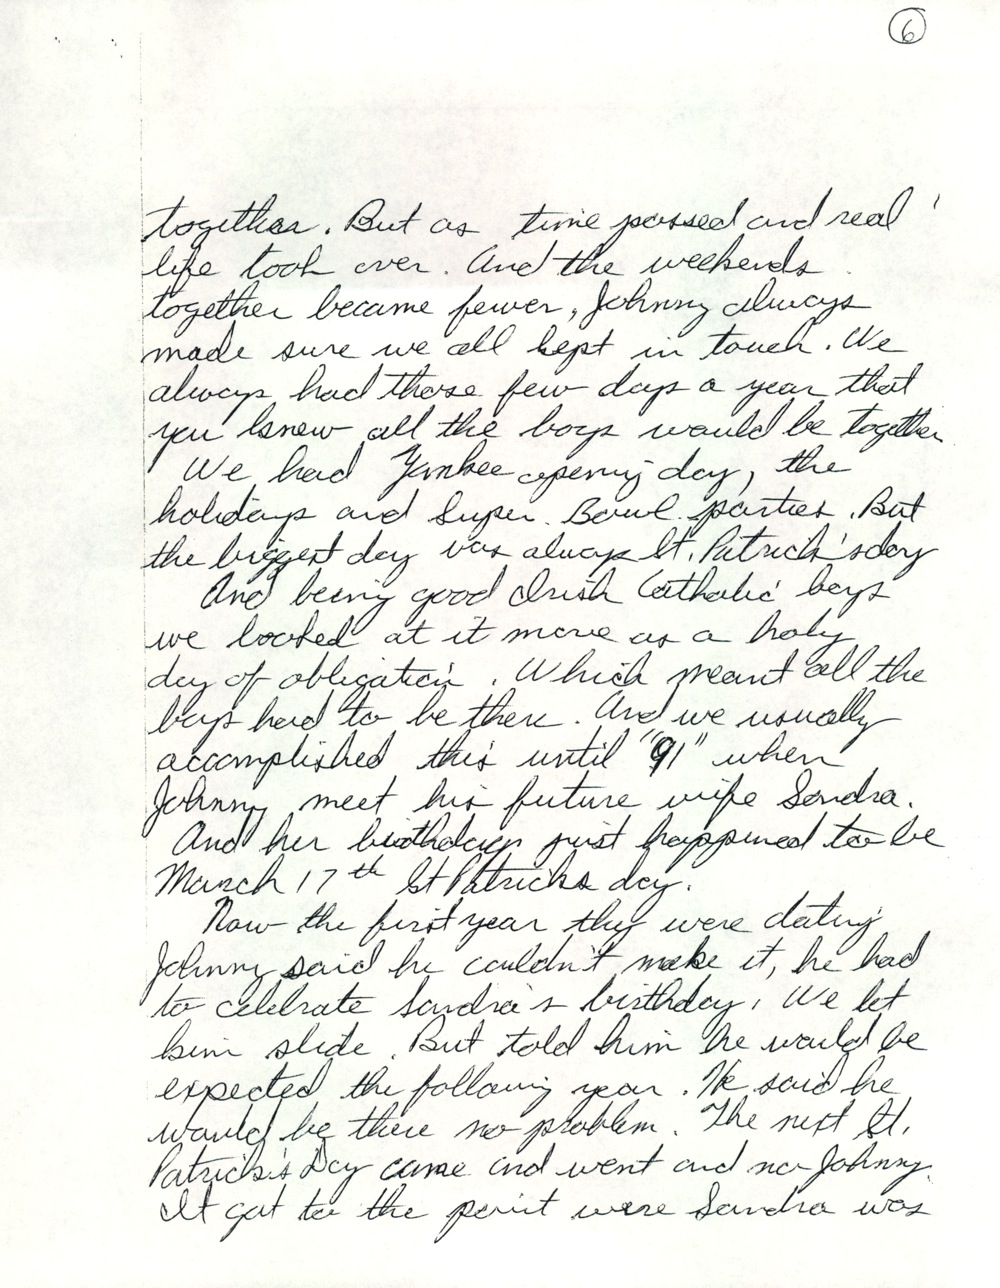 6
together. But as time passed and real
life took over. And the weekends
together became fewer, Johnny always
made sure we all kept in touch. We
always had those few days a year that
you knew all the boys would be together
We had Yankee opening day, the
holidays and Super Bowl parties. But
the biggest day was always St. Patrick's day
And being good Irish Catholic boys
we looked at it more as a holy
day of obligation. Which meant all the
boys had to be there. And we usually
accomplished this until "91" when
Johnny meet his future wife Sandra.
And her birthday just happened to be
March 17th St Patricks day.
Now the first year they were dating
Johnny said he couldn't make it, he had
to celebrate Sandra's birthday. We let
him slide. But told him he would be
expected the following year. He said he
would be there no problem. The next St.
Patrick's Day came and went and no Johnny.
It got to the point were Sandra was